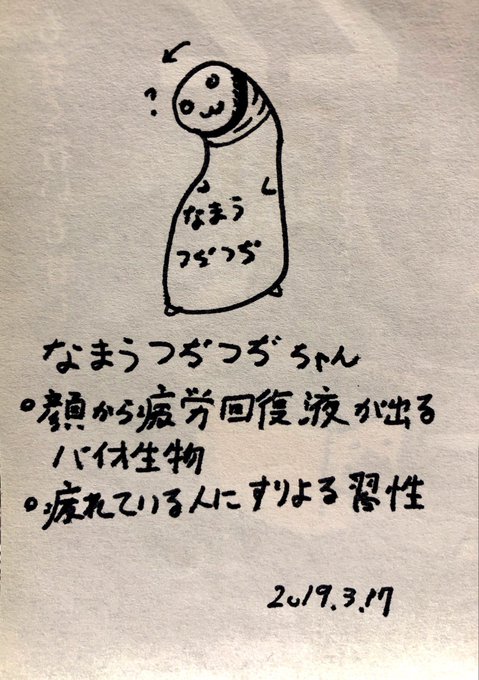 ?
なまう
つぢつぢ
なまうつぢつぢちゃん
○顔から疲労回復液が出る
バイオ生物
○疲れている人にすりよる習性
2019.3.17